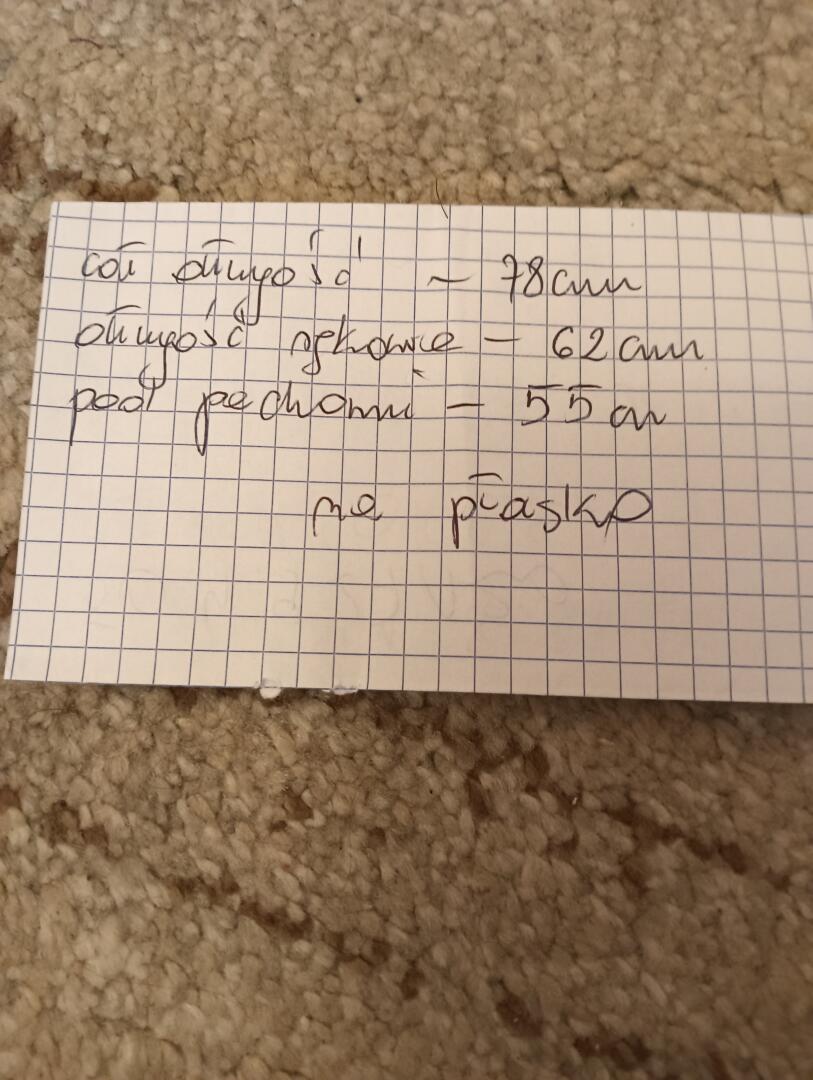 cał długość – 78cm
długość rękawa – 62cm
pod pachami – 55cm
na płasko